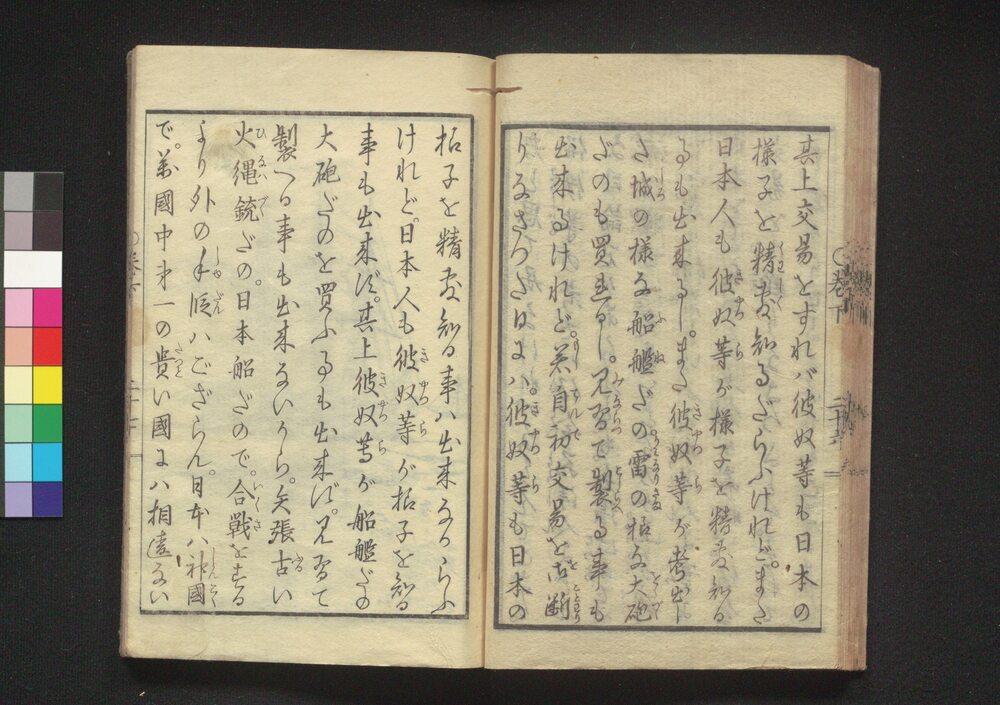 其上交易をすれバ彼奴等も日本の
様子を精委知るだらふけれど。また
日本人も彼奴等が様子を精委知る
事も出来るし。また彼奴等が考出し
た城の様な船艦だの雷の様な大砲
だのも買るし。見習て製る事も
出来るけれど。若自初交易を御断
りなさつた日にハ。彼奴等も日本の
様子を精委知る事ハ出来なからふ
けれど。日本人も彼奴等が様子を知る
事も出来ず。其上彼奴等が船艦だの
大砲だのを買ふ事も出来ず。見習て
製へる事も出来ないから。矢張古い
火縄銃だの。日本船だので。合戦をする
より外の手段ハござらん。日本ハ神國
で。萬國中第一の貴い國にハ相違ない
巻下
二十六